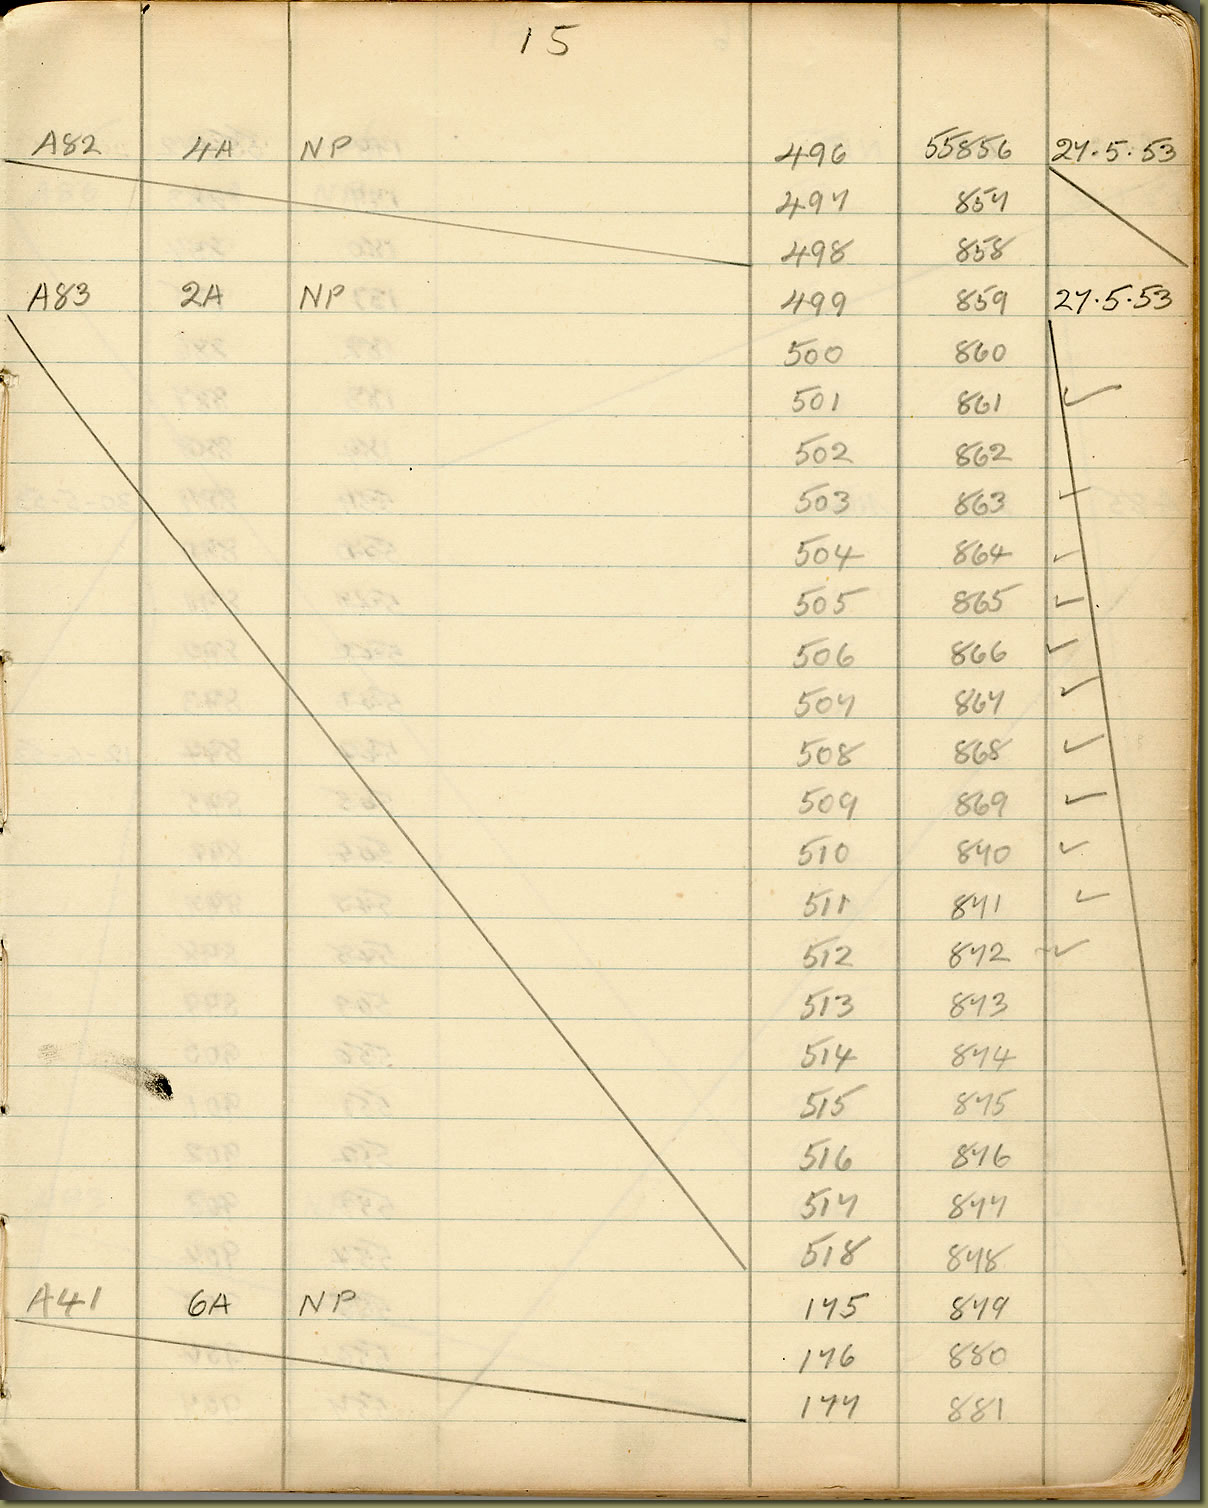 15
A82 4A NP 496 55856 27.5.53
497 857
498 858
A83 2A NP 499 859 27.5.53
500 860
501 861 ✓
502 862
503 863 ✓
504 864 ✓
505 865 ✓
506 866 ✓
507 867 ✓
508 868 ✓
509 869 ✓
510 870 ✓
511 871 ✓
512 872 ✓
513 873
514 874
515 875
516 876
517 877
518 878
A41 6A NP 175 879
176 880
177 881